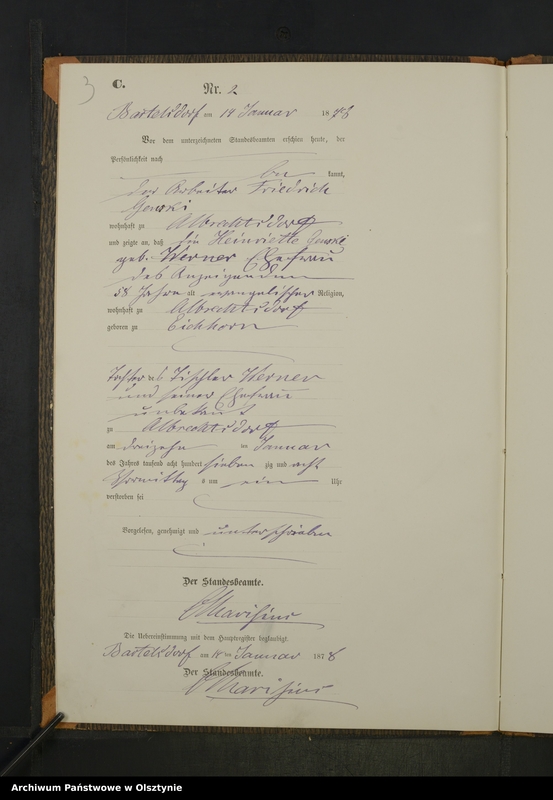 3
C.
Nr. 2
Bartelsdorf am 14 Januar 1878
Vor dem unterzeichneten Standesbeamten erschien heute, der
Persönlichkeit nach
be kannt,
der Arbeiter Friedrich
Gewski
wohnhaft zu Albrechtsdorf
und zeigte an, daß die Henriette Gewski
geb. Werner Ehefrau
des Anzeigenden
58 Jahre alt evangelischer Religion,
wohnhaft zu Albrechtsdorf
geboren zu Eichhorn
Tochter des Tischler Werner
und seiner Ehefrau
unbekannt
zu Albrechtsdorf
am dreizehn ten Januar
des Jahres tausend acht hundert sieben zig und acht
Vormittag s um ein Uhr
verstorben sei
Vorgelesen, genehmigt und unterschrieben
Der Standesbeamte.
Die Uebereinstimmung mit dem Hauptregister beglaubigt.
Bartelsdorf am 14 ten Januar 1878
Der Standesbeamte.
Archiwum Państwowe w Olsztynie